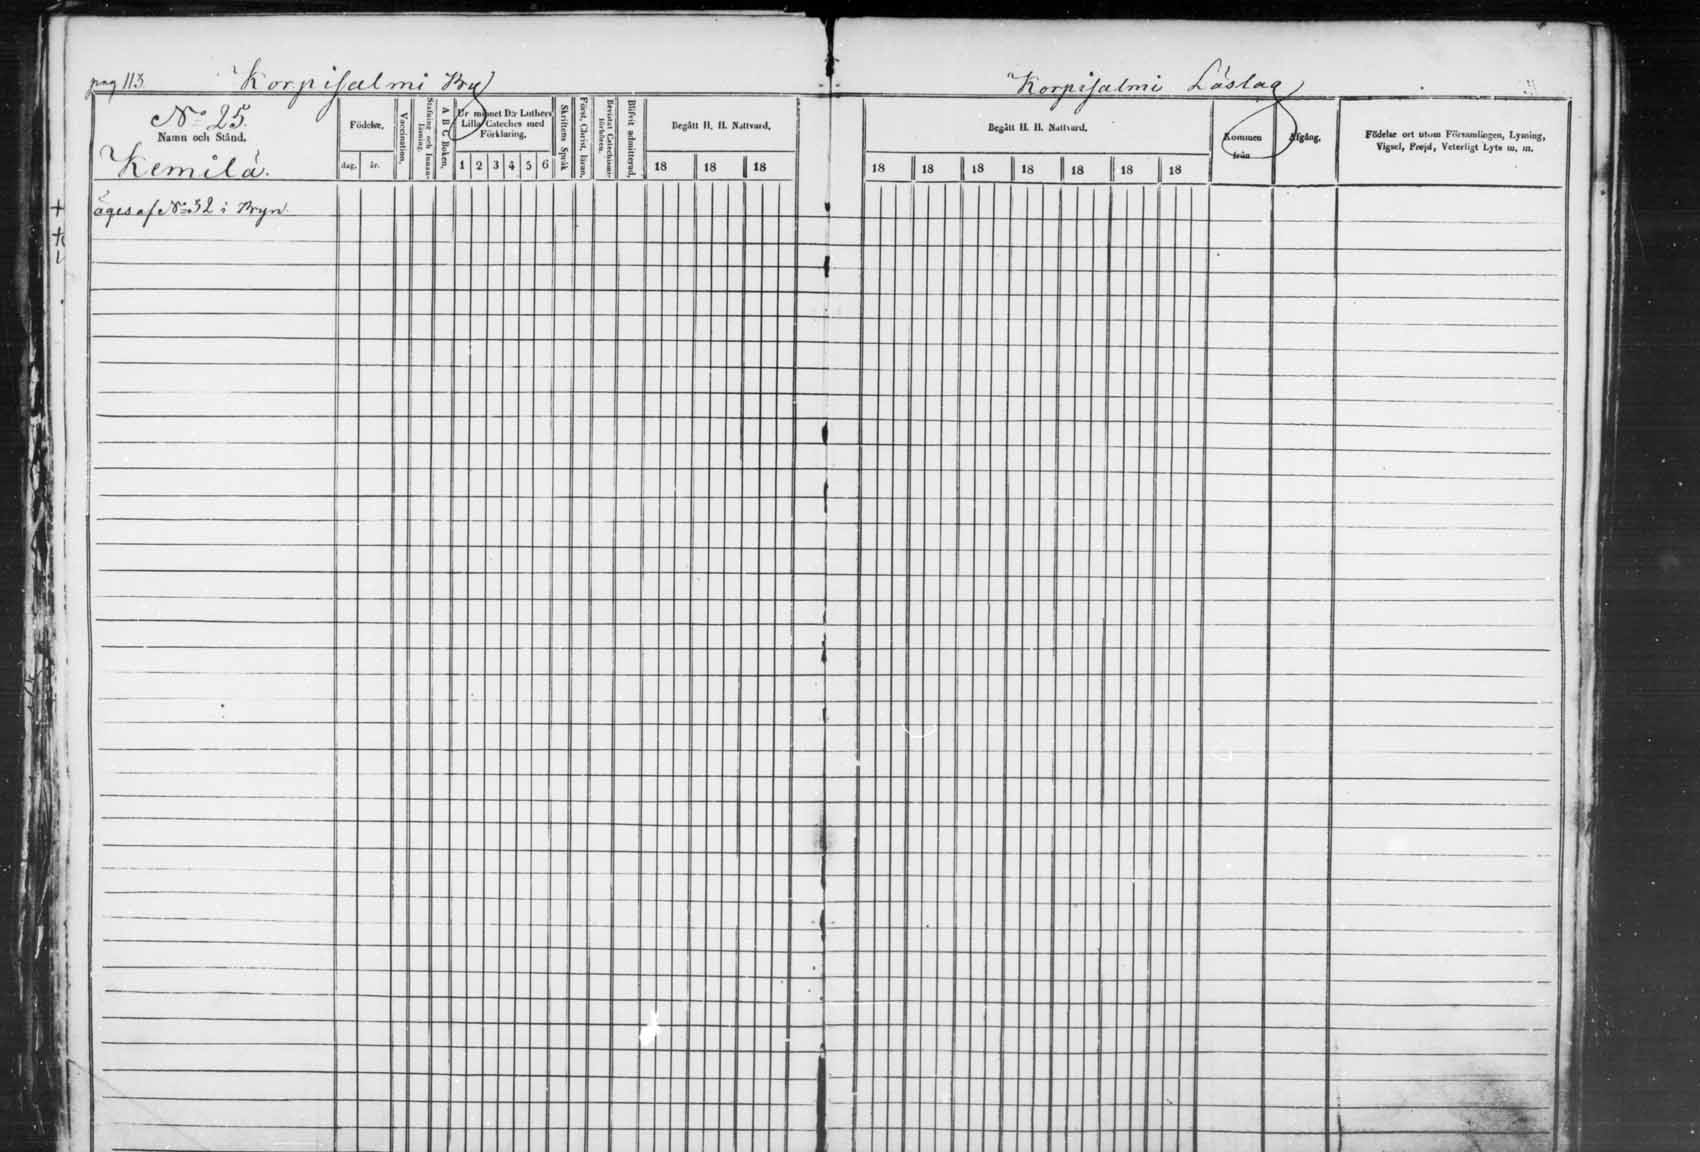 pag 113. Korpisalmi By
Korpisalmi Läslag
No 25.
Namn och Stånd.
Kemilä.
Födelse,
dag.
år.
Vaccination,
Stafning och Innan-läsning.
A B C Boken,
Ur minnet D:r Luthers
Lilla Cateches med
Förklaring,
1 2 3 4 5 6
Skriftens Språk
Förest. Christ. Läran,
Bevistat Catechismi-förhören.
Blifvit admitterad,
Begått H. H. Nattvard,
18 18 18
Begått H. H. Nattvard.
18 18 18 18 18 18 18
Kommen
från
Afgång,
Födelse ort utom Församlingen, Lysning,
Vigsel, Frejd, Veterligt Lyte m. m.
äges af No 32 i Byn.